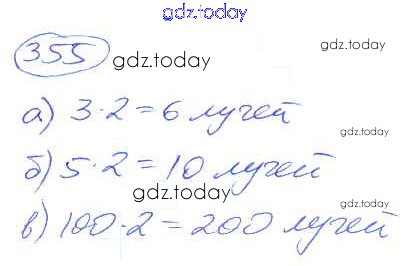 gdz.today
355 gdz.today gdz.today
а) 3·2=6 лучей
gdz.today
б) 5·2=10 лучей
gdz.today gdz.today
в) 100·2=200 лучей